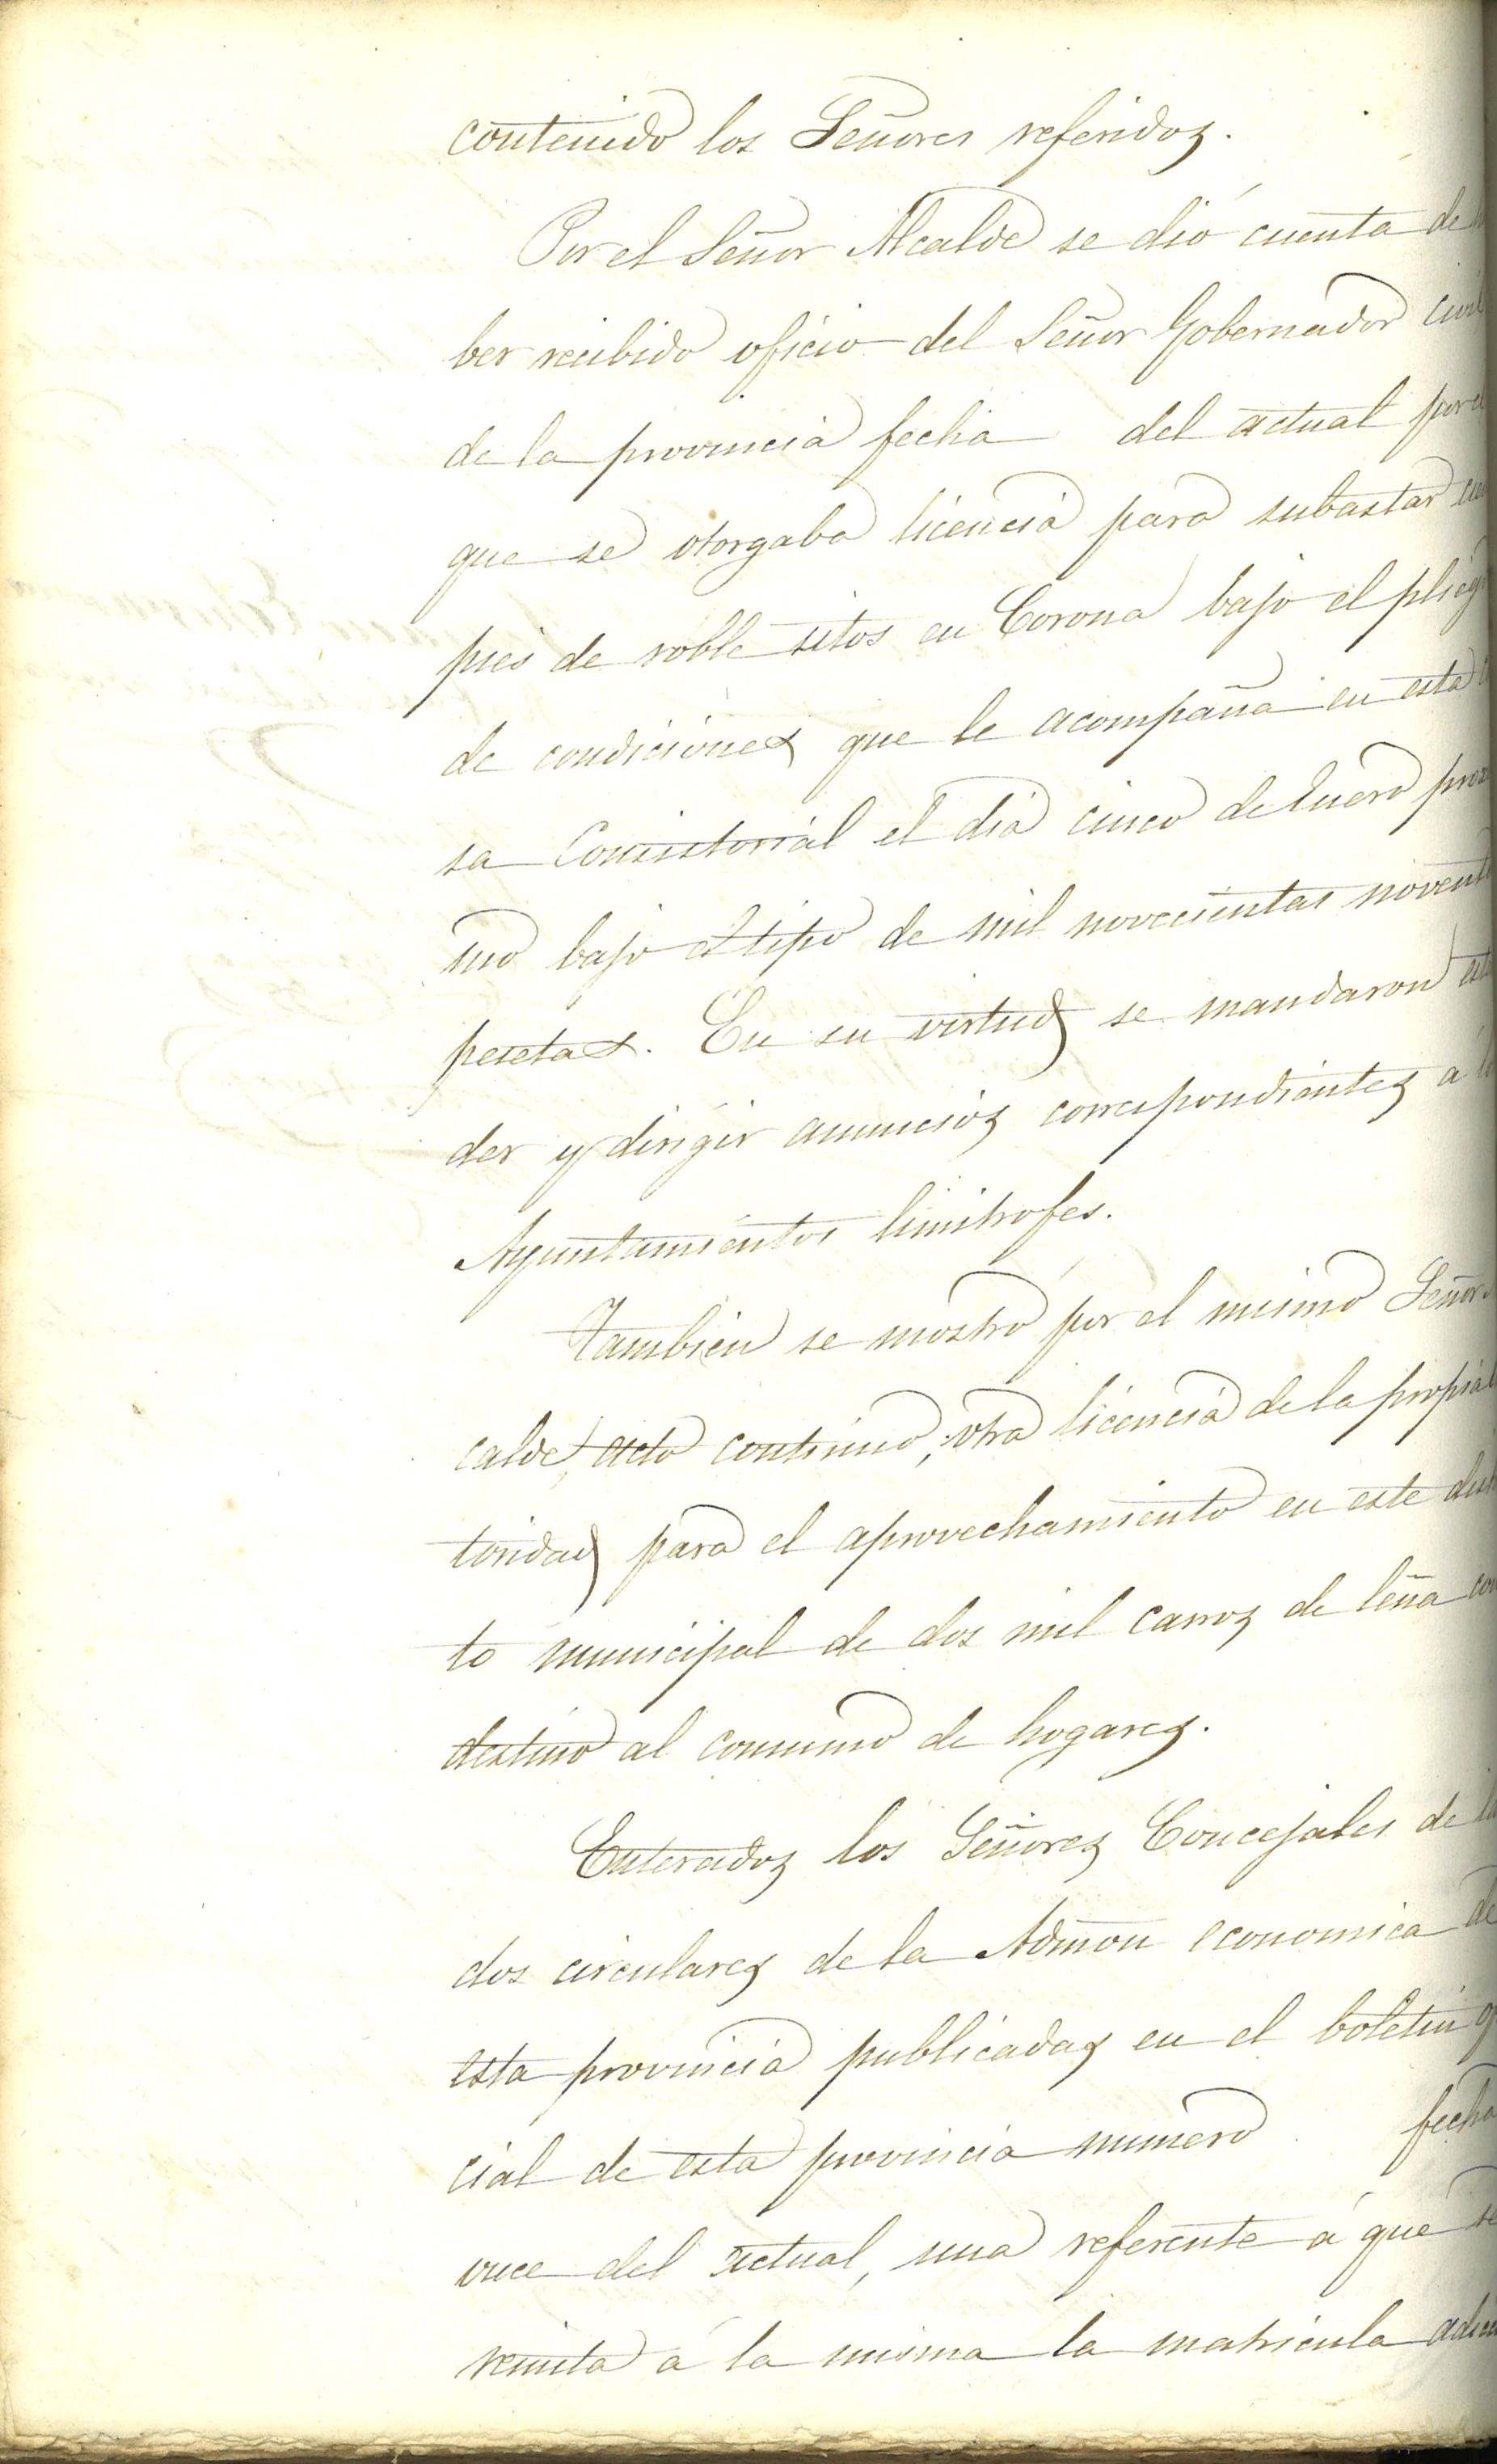 contenido los Señores referidos.
Por el Señor Alcalde se dió cuenta de
ber recibido oficio del Señor Gobernador civil
de la provincia fecha del actual por el
que se otorgaba licencia para subastar
pies de roble sitos en Corona bajo el plieg
de condiciones que le acompaña en esta
sa Consistorial el dia cinco de Enero prox
mo bajo el tipo de mil novecientas noventa
pesetas. En su virtud se mandaron este
der y dirigir anuncios correspondientes a
Ayuntamientos limitrofes.
Tambien se mostró por el mismo Señor
calde, acto continuo, otra licencia de la propia
toridad para el aprovechamiento en este dist
to municipal de dos mil carros de leña con
destino al consumo de hogares.
Enterados los Señores Concejales de
dos circulares de la Admon economica de
esta provincia publicadas en el boletin o
cial de esta provincia numero fecha
once del actual, una referente á que se
remita á la misma la matricula adici